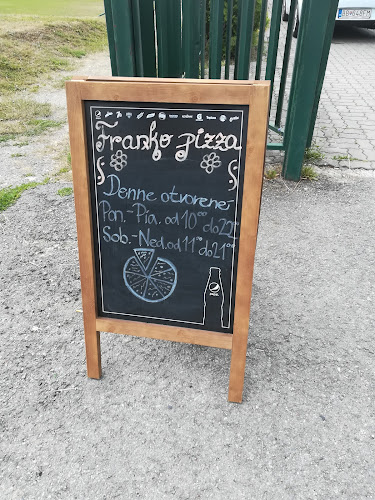 Franko pizza
Denne otvorené
Pon.-Pia. od 10⁰⁰ do 22⁰⁰
Sob.-Ned. od 11⁰⁰ do 21⁰⁰
pepsi